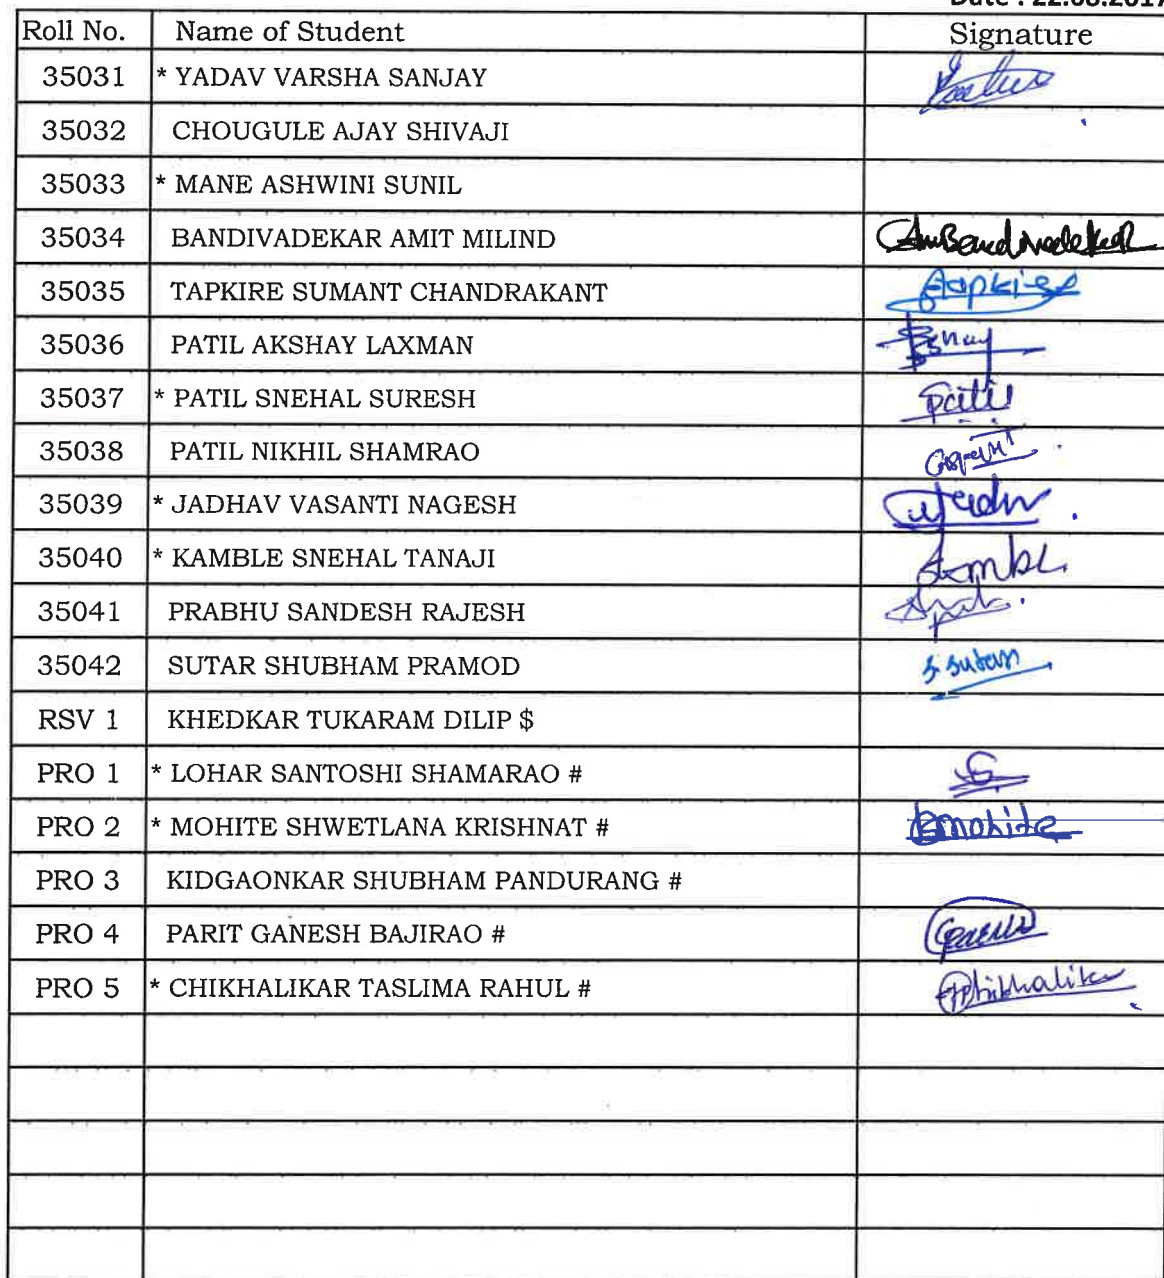 Date : 22.08.2017
Roll No. Name of Student Signature
35031 * YADAV VARSHA SANJAY
35032 CHOUGULE AJAY SHIVAJI
35033 * MANE ASHWINI SUNIL
35034 BANDIVADEKAR AMIT MILIND
35035 TAPKIRE SUMANT CHANDRAKANT
35036 PATIL AKSHAY LAXMAN
35037 * PATIL SNEHAL SURESH Patil
35038 PATIL NIKHIL SHAMRAO
35039 * JADHAV VASANTI NAGESH
35040 * KAMBLE SNEHAL TANAJI
35041 PRABHU SANDESH RAJESH
35042 SUTAR SHUBHAM PRAMOD
RSV 1 KHEDKAR TUKARAM DILIP $
PRO 1 * LOHAR SANTOSHI SHAMARAO #
PRO 2 * MOHITE SHWETLANA KRISHNAT #
PRO 3 KIDGAONKAR SHUBHAM PANDURANG #
PRO 4 PARIT GANESH BAJIRAO #
PRO 5 * CHIKHALIKAR TASLIMA RAHUL #